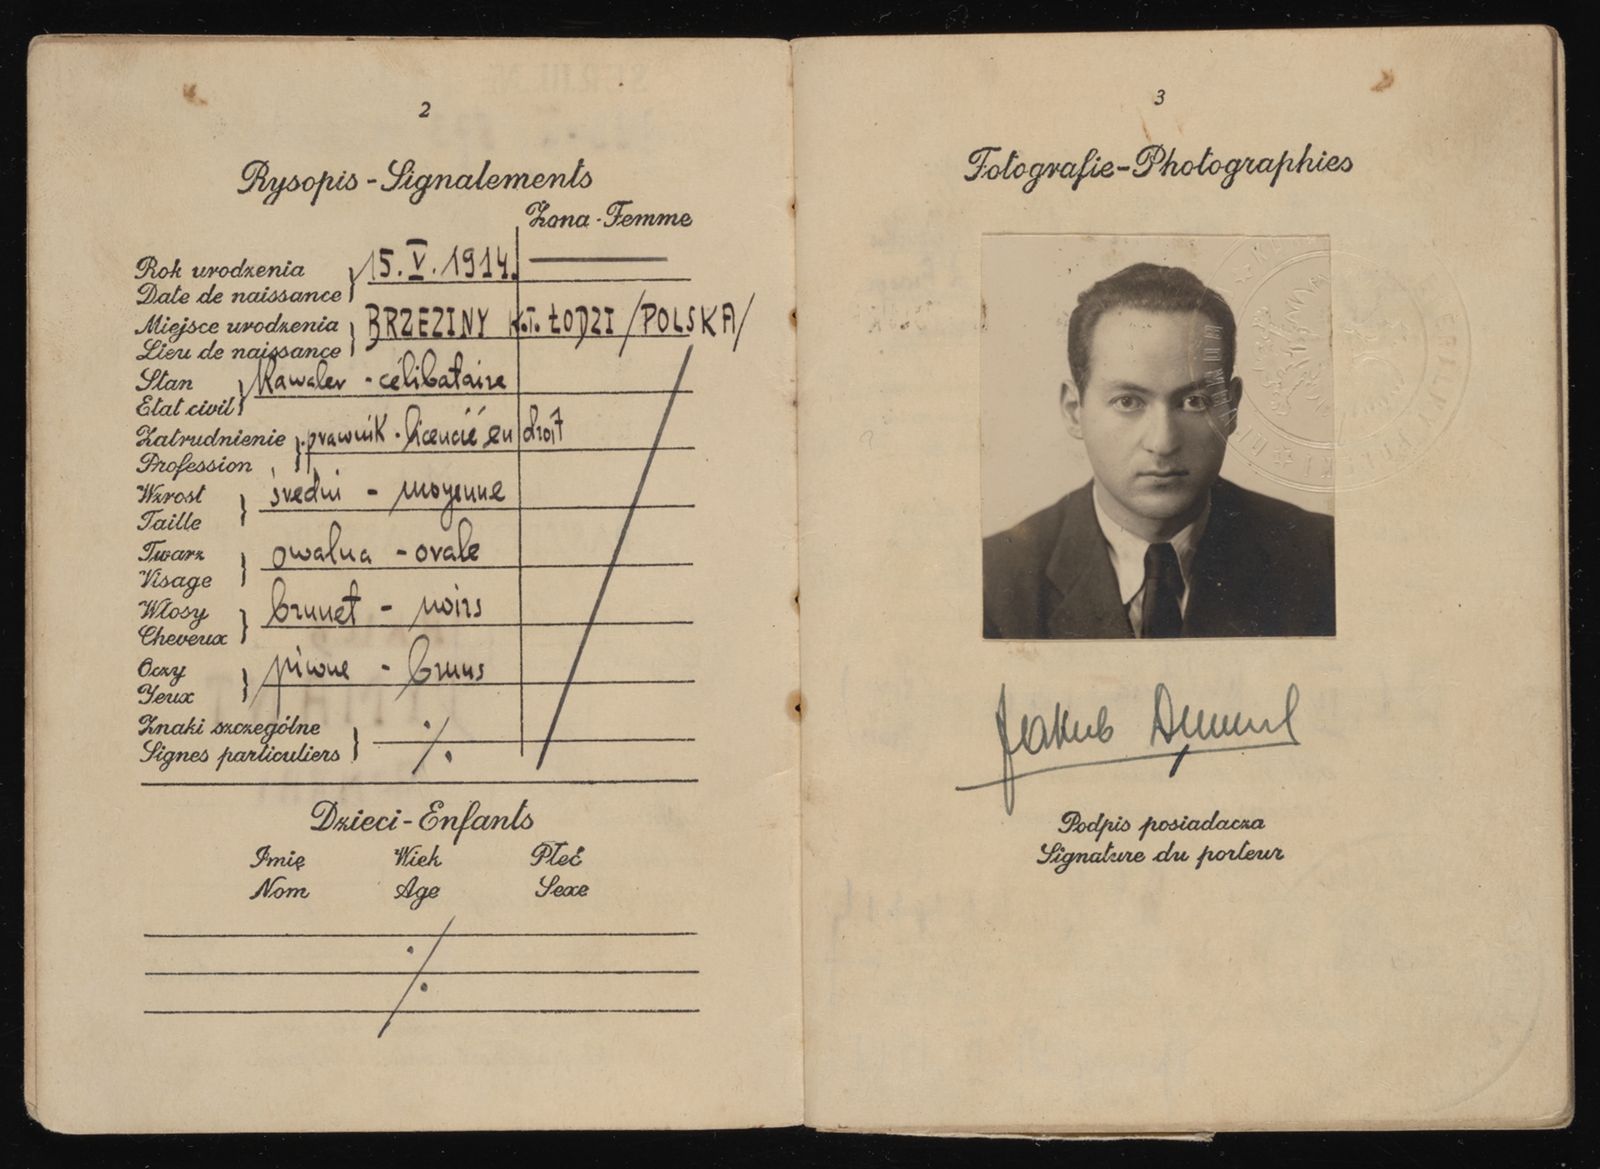 2
Rysopis - Signalements
Żona - Femme
Rok urodzenia
Date de naissance
15.V.1914.
Miejsce urodzenia
Lieu de naissance
BRZEZINY K.T. ŁODZI /POLSKA/
Stan
Etat civil
Kawaler - célibataire
Zatrudnienie
Profession
prawnik - licencié en droit
Wzrost
Taille
średni - moyenne
Twarz
Visage
owalna - ovale
Włosy
Cheveux
brunet - noirs
Oczy
Yeux
piwne - bruns
Znaki szczególne
Signes particuliers
./.
Dzieci - Enfants
Imię Wiek Płeć
Nom Age Sexe
./.
3
Fotografie - Photographies
Jakub
Podpis posiadacza
Signature du porteur